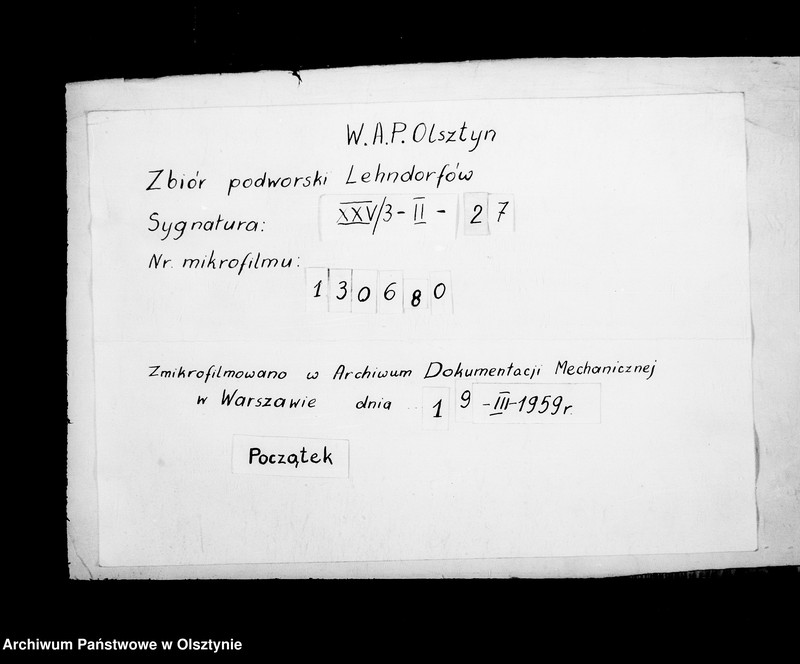 W.A.P. Olsztyn
Zbiór podworski Lehndorfów
Sygnatura: XXV/3-II-27
Nr. mikrofilmu:
130680
Zmikrofilmowano w Archiwum Dokumentacji Mechanicznej
w Warszawie dnia 19-III-1959r.
Początek
Archiwum Państwowe w Olsztynie